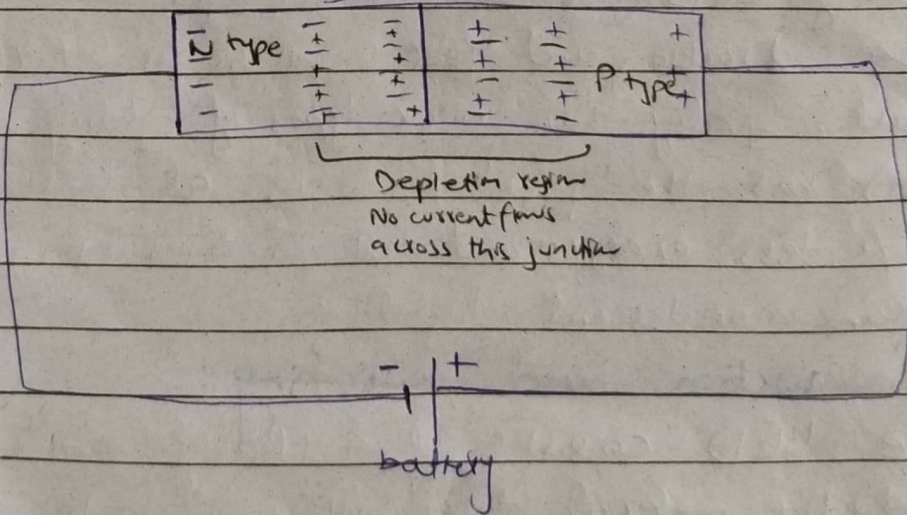 N type
P type
Depletion region
No current flows
across this junction
- +
battery